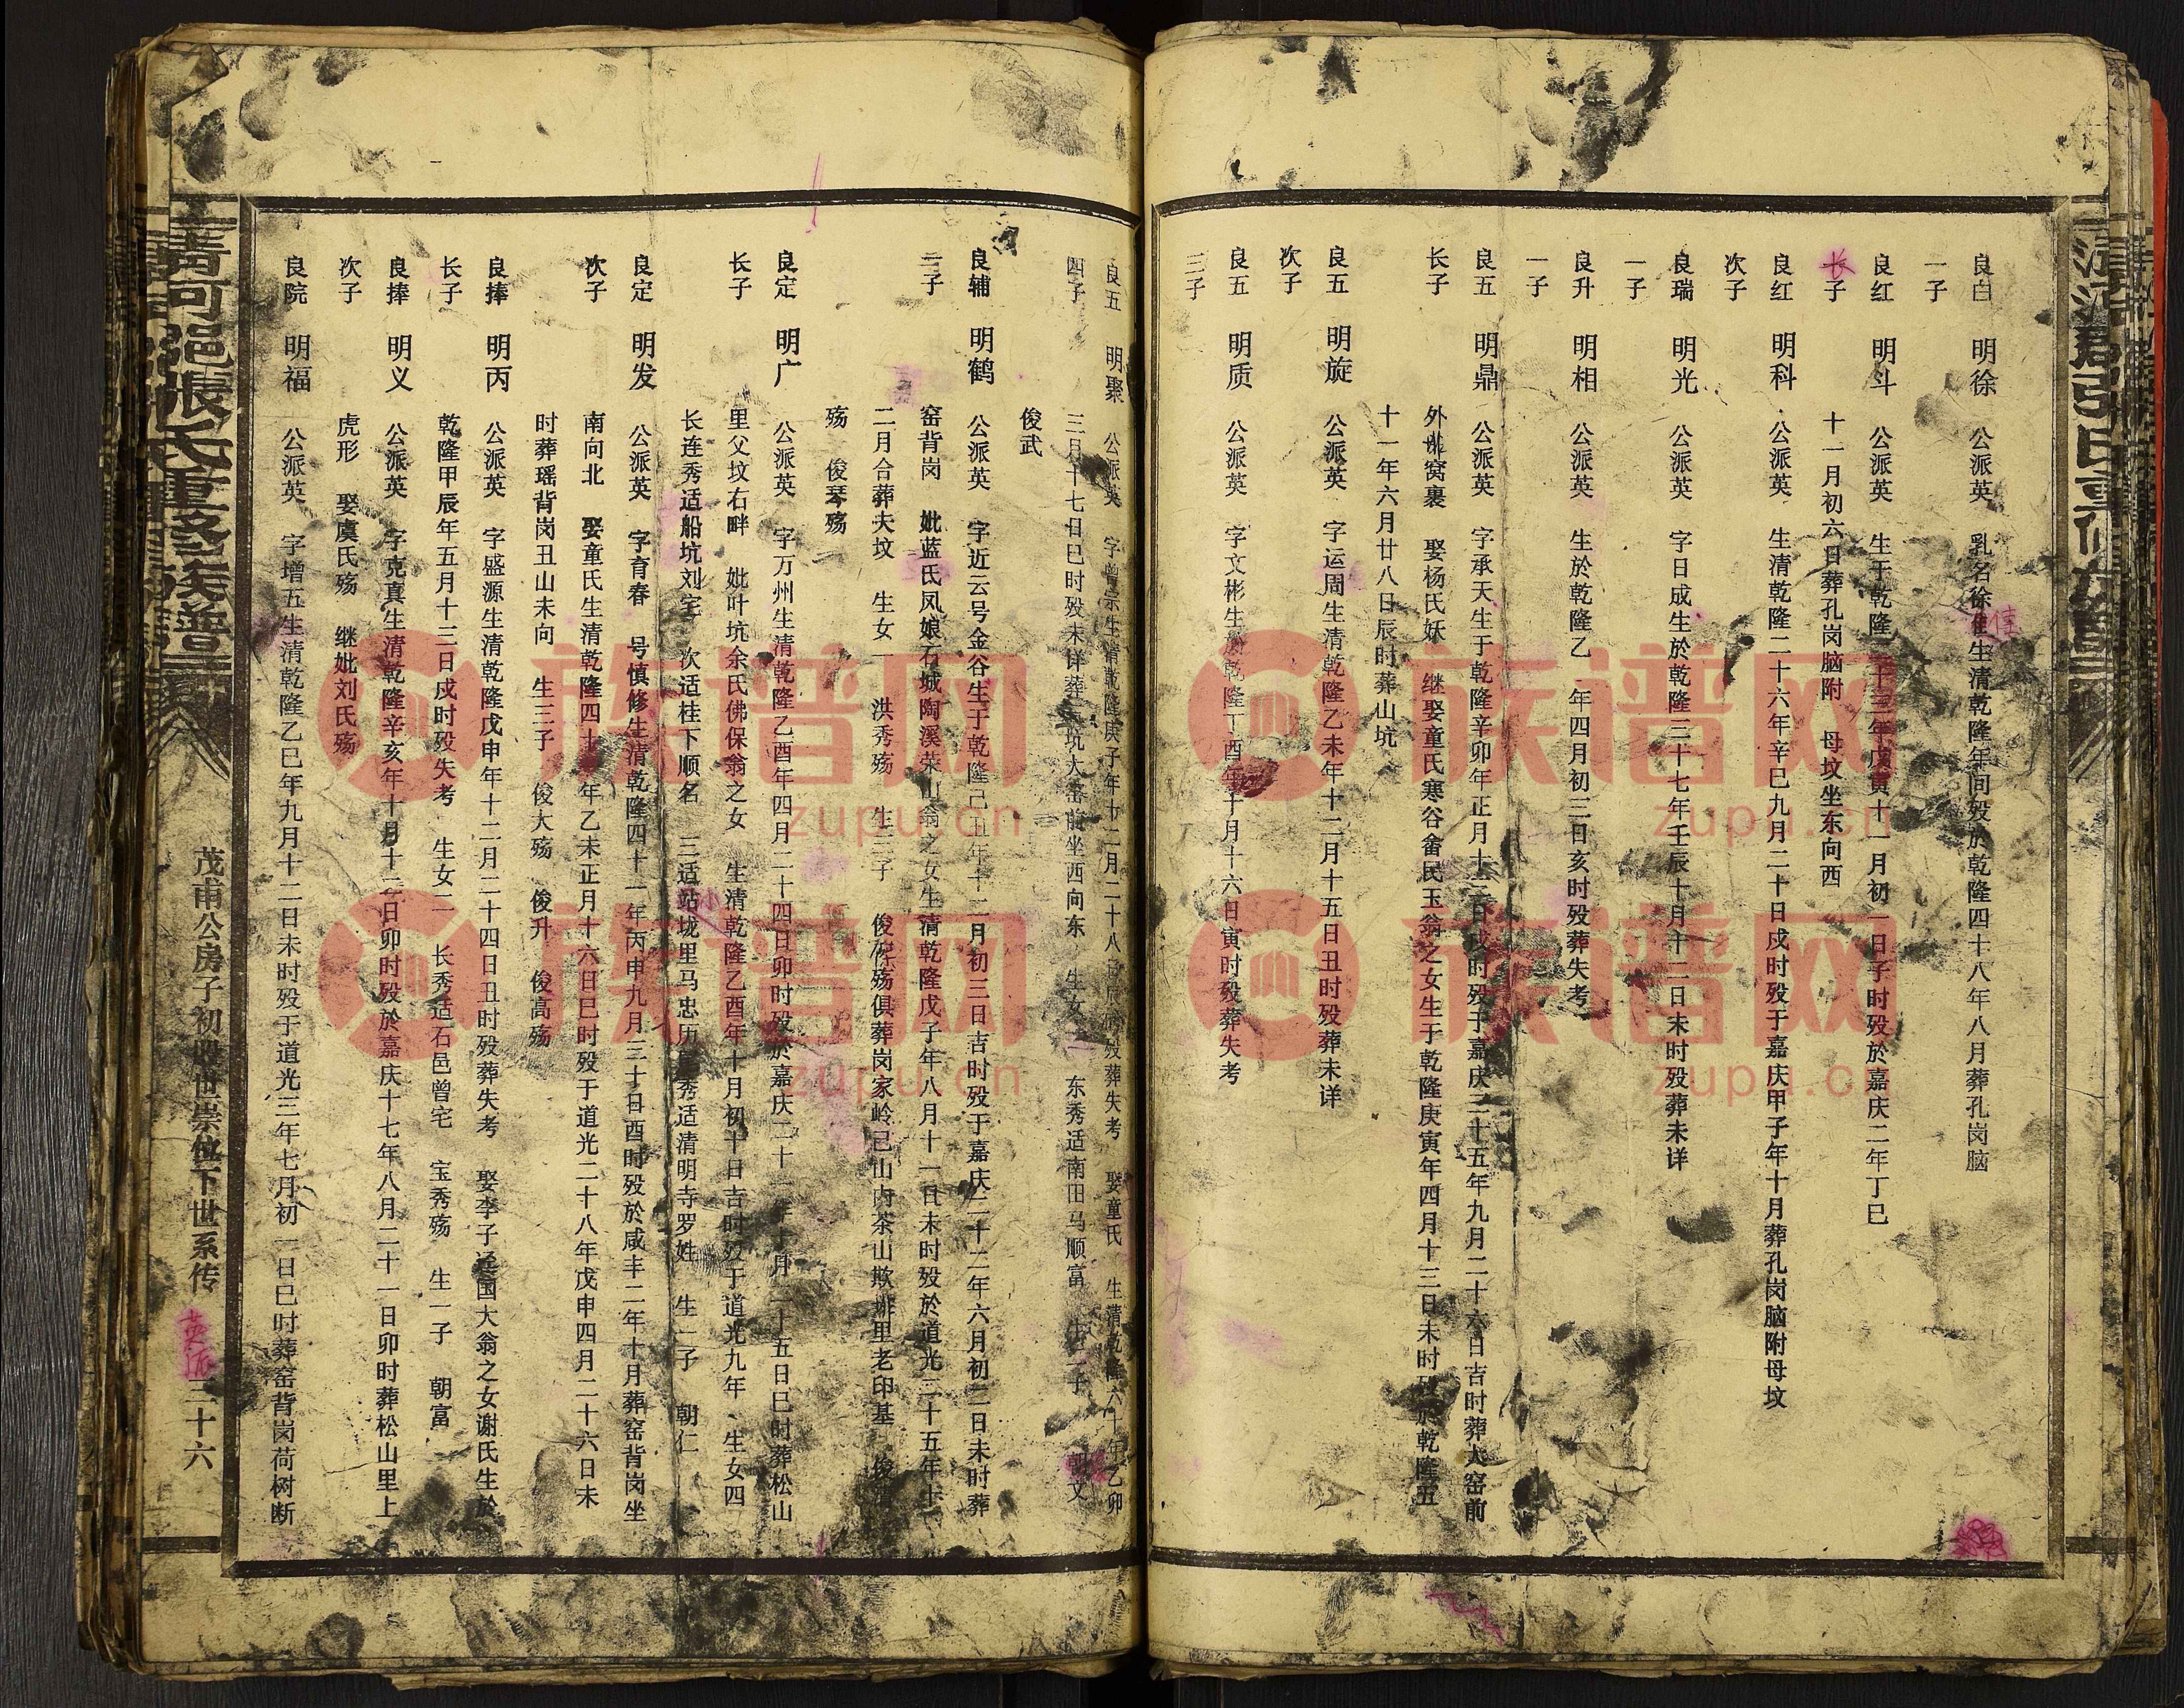 良白
一子
明徐
公派英 乳名徐隹生清乾隆年间殁於乾隆四十八年八月葬孔岗脑
良红
长子
明斗
公派英 生于乾隆二十三年戊寅十一月初一日子时殁於嘉庆二年丁巳
十一月初六日葬孔岗脑附 母坟坐东向西
良红
次子
明科
公派英 生清乾隆二十六年辛巳九月二十日戌时殁于嘉庆甲子年十月葬孔岗脑附母坟
良瑞
一子
明光
公派英 字日成生於乾隆三十七年壬辰十月十二日未时殁葬未详
良升
一子
明相
公派英 生於乾隆乙 年四月初三日亥时殁葬失考
良五
长子
明鼎
公派英 字承天生于乾隆辛卯年正月十二日戌时殁于嘉庆三十五年九月二十六日吉时葬大窑前
外 窝裹 娶杨氏妖 继娶童氏寒谷畲民玉翁之女生于乾隆庚寅年四月十三日未时殁於乾隆五
十一年六月廿八日辰时葬山坑
良五
次子
明旋
公派英 字运周生清乾隆乙未年十二月十五日丑时殁葬未详
良五
三子
明质
公派英 字文彬生於乾隆丁酉年十月十六日寅时殁葬失考
良五
四子
明聚
公派英 字曾宗生清乾隆庚子年十二月二十八日辰时殁葬失考 娶童氏 生清乾隆六十年乙卯
三月十七日巳时殁未详葬 坑大窑前坐西向东 生女 东秀适南田马顺富 生二子 朝文
俊武
良辅
二子
明鹤
公派英 字近云号金谷生于乾隆己丑年十二月初三日吉时殁于嘉庆二十二年六月初二日未时葬
窑背岗 妣蓝氏凤娘石城陶溪荣山翁之女生清乾隆戊子年八月十一日未时殁於道光三十五年十
二月合葬夫坟 生女一 洪秀殇 生三子 俊 殇俱葬岗家岭己山内茶山欺排里老印基 俊
殇 俊琴殇
良定
长子
明广
公派英 字万州生清乾隆乙酉年四月二十四日卯时殁於嘉庆二十 年 月二十五日巳时葬松山
里父坟右畔 妣叶坑余氏佛保翁之女 生清乾隆乙酉年十月初十日吉时殁于道光九年 生女四
长连秀适船坑刘宅 次适桂下顺名 三适站垅里马忠历 秀适清明寺罗姓 生一子 朝仁
良定
次子
明发
公派英 字育春 号慎修生清乾隆四十一年丙申九月三十日酉时殁於咸丰二年十月葬窑背岗坐
南向北 娶童氏生清乾隆四十 年乙未正月十六日巳时殁于道光二十八年戊申四月二十六日未
时葬瑶背岗丑山未向 生三子 俊大殇 俊升 俊高殇
良捧
长子
明丙
公派英 字盛源生清乾隆戊申年十二月二十四日丑时殁葬失考 娶李子迳国大翁之女谢氏生於
乾隆甲辰年五月十三日戌时殁失考 生女二 长秀适石邑曾宅 宝秀殇 生一子 朝富
良捧
次子
明义
公派英 字克真生清乾隆辛亥年十月十二日卯时殁於嘉庆十七年八月二十一日卯时葬松山里上
虎形 娶虞氏殇 继妣刘氏殇
良院
明福
公派英 字增五生清乾隆乙巳年九月十二日未时殁于道光三年七月初一日巳时葬窑背岗荷树断
清河郡張氏重修族譜
茂甫公房子初 世崇位下世系传
英派
三十六
族谱网
zupu.cn
族谱网
zupu.cn
族谱网
zupu.cn
族谱网
zupu.cn